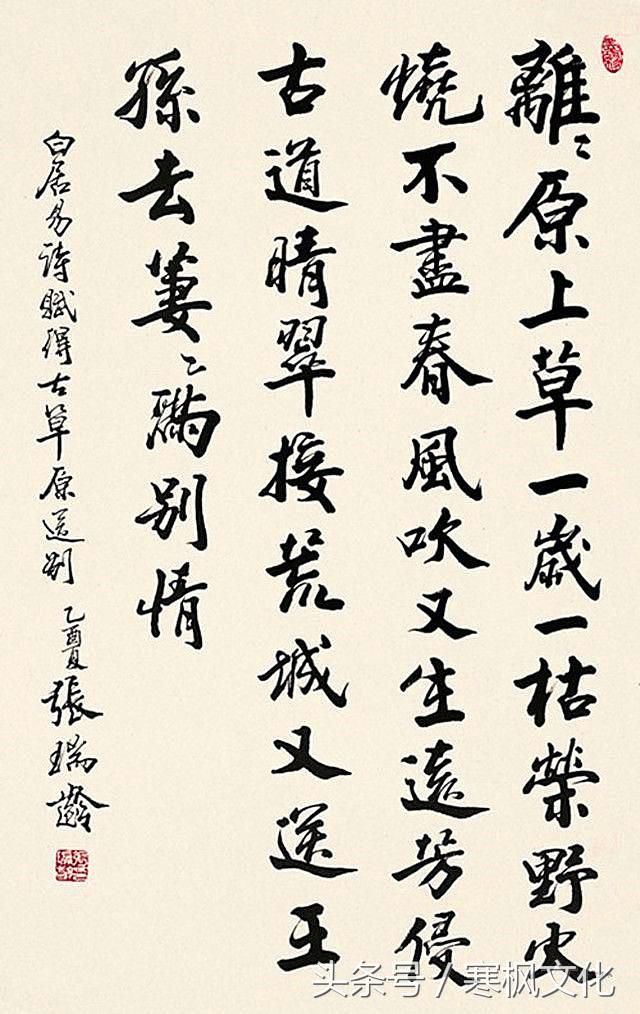 離〻原上草一歲一枯榮野火
燒不盡春風吹又生遠芳侵
古道晴翠接荒城又送王
孫去萋〻滿別情
白居易詩賦得古草原送別 乙酉夏 張瑞齡
头条号/寒枫文化